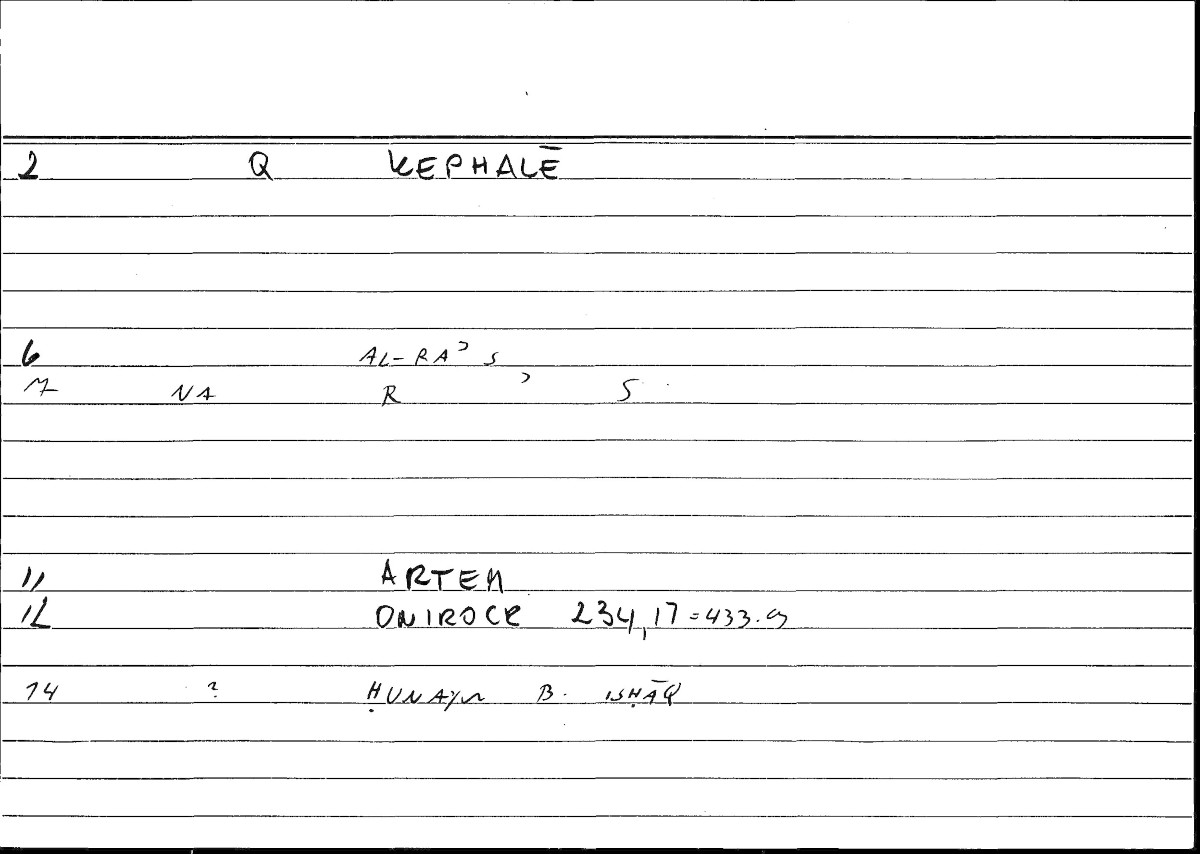 2 Q KEPHALĒ
6 AL-RAʾS
7 NA R ʾ S
11 ARTEM
12 ONIROCR 234,17=433.9
14 ? ḤUNAYN B. ISḤĀQ